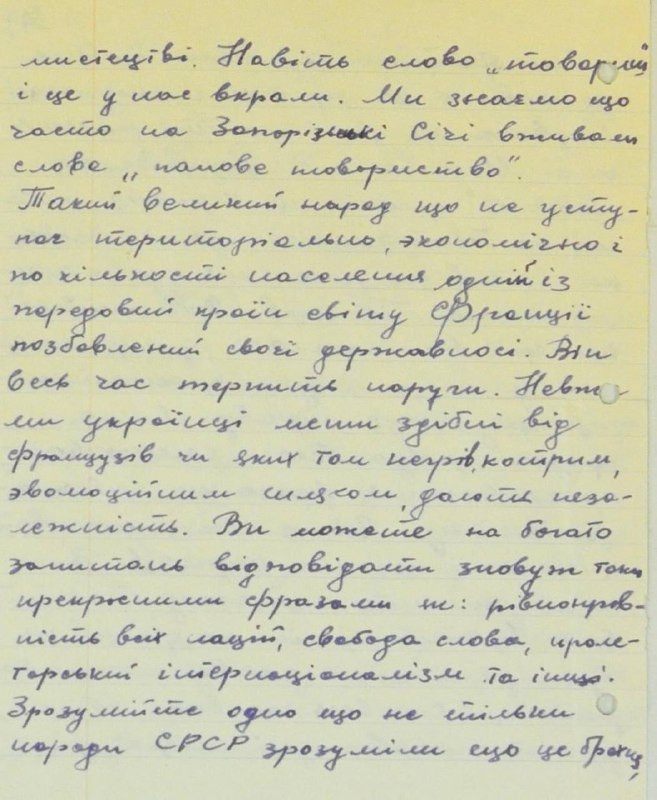 мистецтві. Навіть слово „товариш"
і це у нас вкрали. Ми знаємо що
часто на Запорізькі Січі вживали
слова „панове товариство".
Такий великий народ що не усту-
пає територіально, экономічно і
по кількості населення одній із
передовий країн світу Франції
позбавлений своєї державносі. Він
весь час терпить наруги. Невже
ми українці менш здібні від
французів чи яких там негрів, котрим,
эволюційним шляхом, дають неза-
лежність. Ви можете на богато
запитань відповідати зновуж таки
прекрасними фразами як: рівноправ-
ність всіх націй, свобода слова, проле-
тарський інтернаціоналізм та інші.
Зрозумійте одно що не тільки
народи СРСР зрозуміли що це брехня,